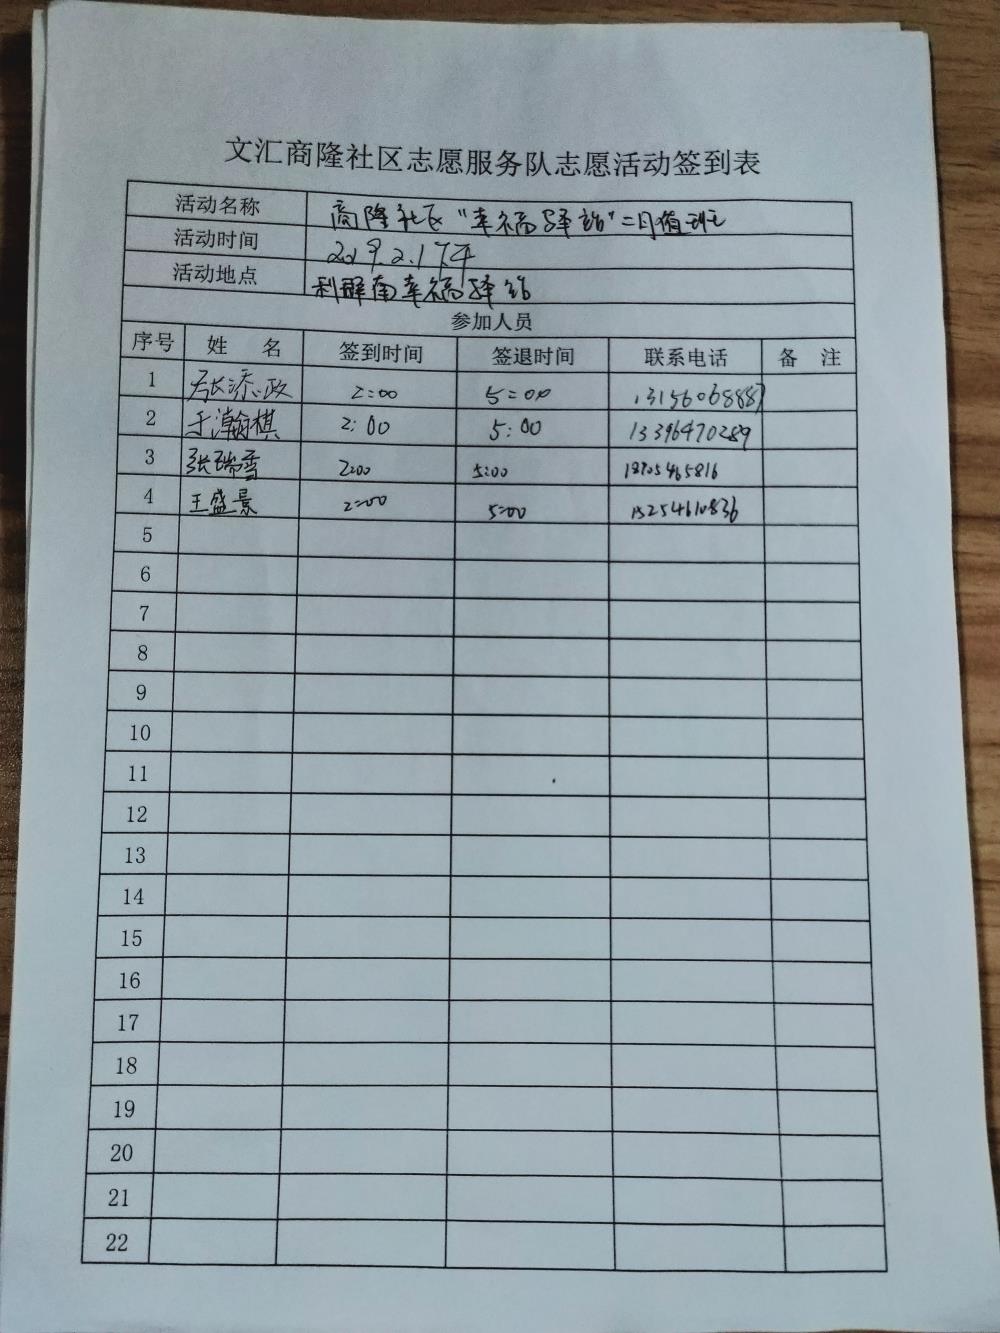 文汇商隆社区志愿服务队志愿活动签到表
活动名称 商隆社区“幸福驿站”二月值班
活动时间 2019.2.17下午
活动地点 利群南幸福驿站
参加人员
序号 姓 名 签到时间 签退时间 联系电话 备 注
1 张添政 2:00 5:00 13156068887
2 于瀚棋 2:00 5:00 13396470289
3 张瑞雪 2:00 5:00 18705465816
4 王盛景 2:00 5:00 15254610836
5
6
7
8
9
10
11
12
13
14
15
16
17
18
19
20
21
22